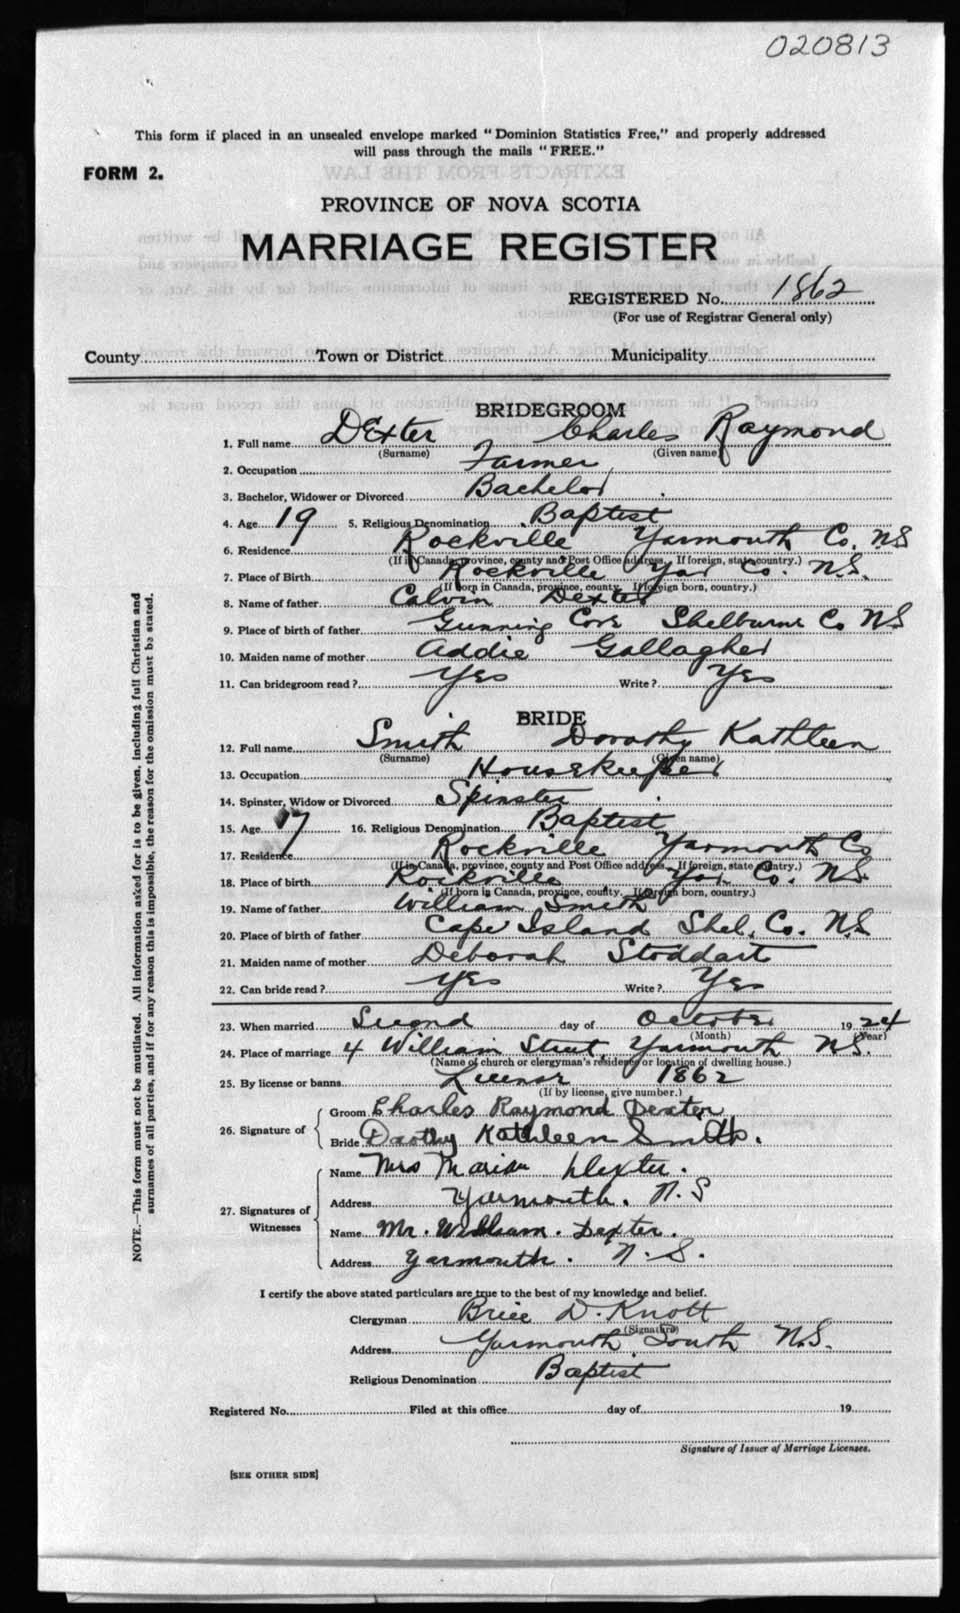 020813
This form if placed in an unsealed envelope marked "Dominion Statistics Free," and properly addressed
will pass through the mails "FREE."
FORM 2.
PROVINCE OF NOVA SCOTIA
MARRIAGE REGISTER
REGISTERED No. 1862
(For use of Registrar General only)
County Town or District Municipality
BRIDEGROOM
1. Full name Dexter Charles Raymond
(Surname) (Given name)
2. Occupation Farmer
3. Bachelor, Widower or Divorced Bachelor
4. Age 19 5. Religious Denomination Baptist
6. Residence Rockville Yarmouth Co. N.S
(If in Canada, province, county and Post Office address. If foreign, state country.)
7. Place of Birth Rockville Yar Co. N.S.
(If born in Canada, province, county. If foreign born, country.)
8. Name of father Calvin Dexter
9. Place of birth of father Gunning Cove Shelburne Co NS
10. Maiden name of mother Addie Gallagher
11. Can bridegroom read? Yes Write? Yes
BRIDE
12. Full name Smith Dorothy Kathleen
(Surname) (Given name)
13. Occupation Housekeeper
14. Spinster, Widow or Divorced Spinster
15. Age 17 16. Religious Denomination Baptist
17. Residence Rockville Yarmouth Co
(If in Canada, province, county and Post Office address. If foreign, state country.)
18. Place of birth Rockville Yar Co. N.S.
(If born in Canada, province, county. If foreign born, country.)
19. Name of father William Smith
20. Place of birth of father Cape Island Shel. Co. N.S
21. Maiden name of mother Deborah Stoddart
22. Can bride read? Yes Write? Yes
23. When married Second day of October 1924
(Month) (Year)
24. Place of marriage 4 William Street, Yarmouth N.S.
(Name of church or clergyman's residence or location of dwelling house.)
25. By license or banns License 1862
(If by license, give number.)
26. Signature of
Groom Charles Raymond Dexter
Bride Dorothy Kathleen Smith.
27. Signatures of Witnesses
Name Mrs Marion Dexter.
Address Yarmouth. N.S
Name Mr. William. Dexter.
Address Yarmouth. N.S.
I certify the above stated particulars are true to the best of my knowledge and belief.
Clergyman Brice D. Knott
(Signature)
Address Yarmouth South N.S.
Religious Denomination Baptist
Registered No. Filed at this office day of 19
Signature of Issuer of Marriage Licenses.
[SEE OTHER SIDE]
NOTE.—This form must not be mutilated. All information asked for is to be given, including full Christian and
surnames of all parties, and if for any reason this is impossible, the reason for the omission must be stated.